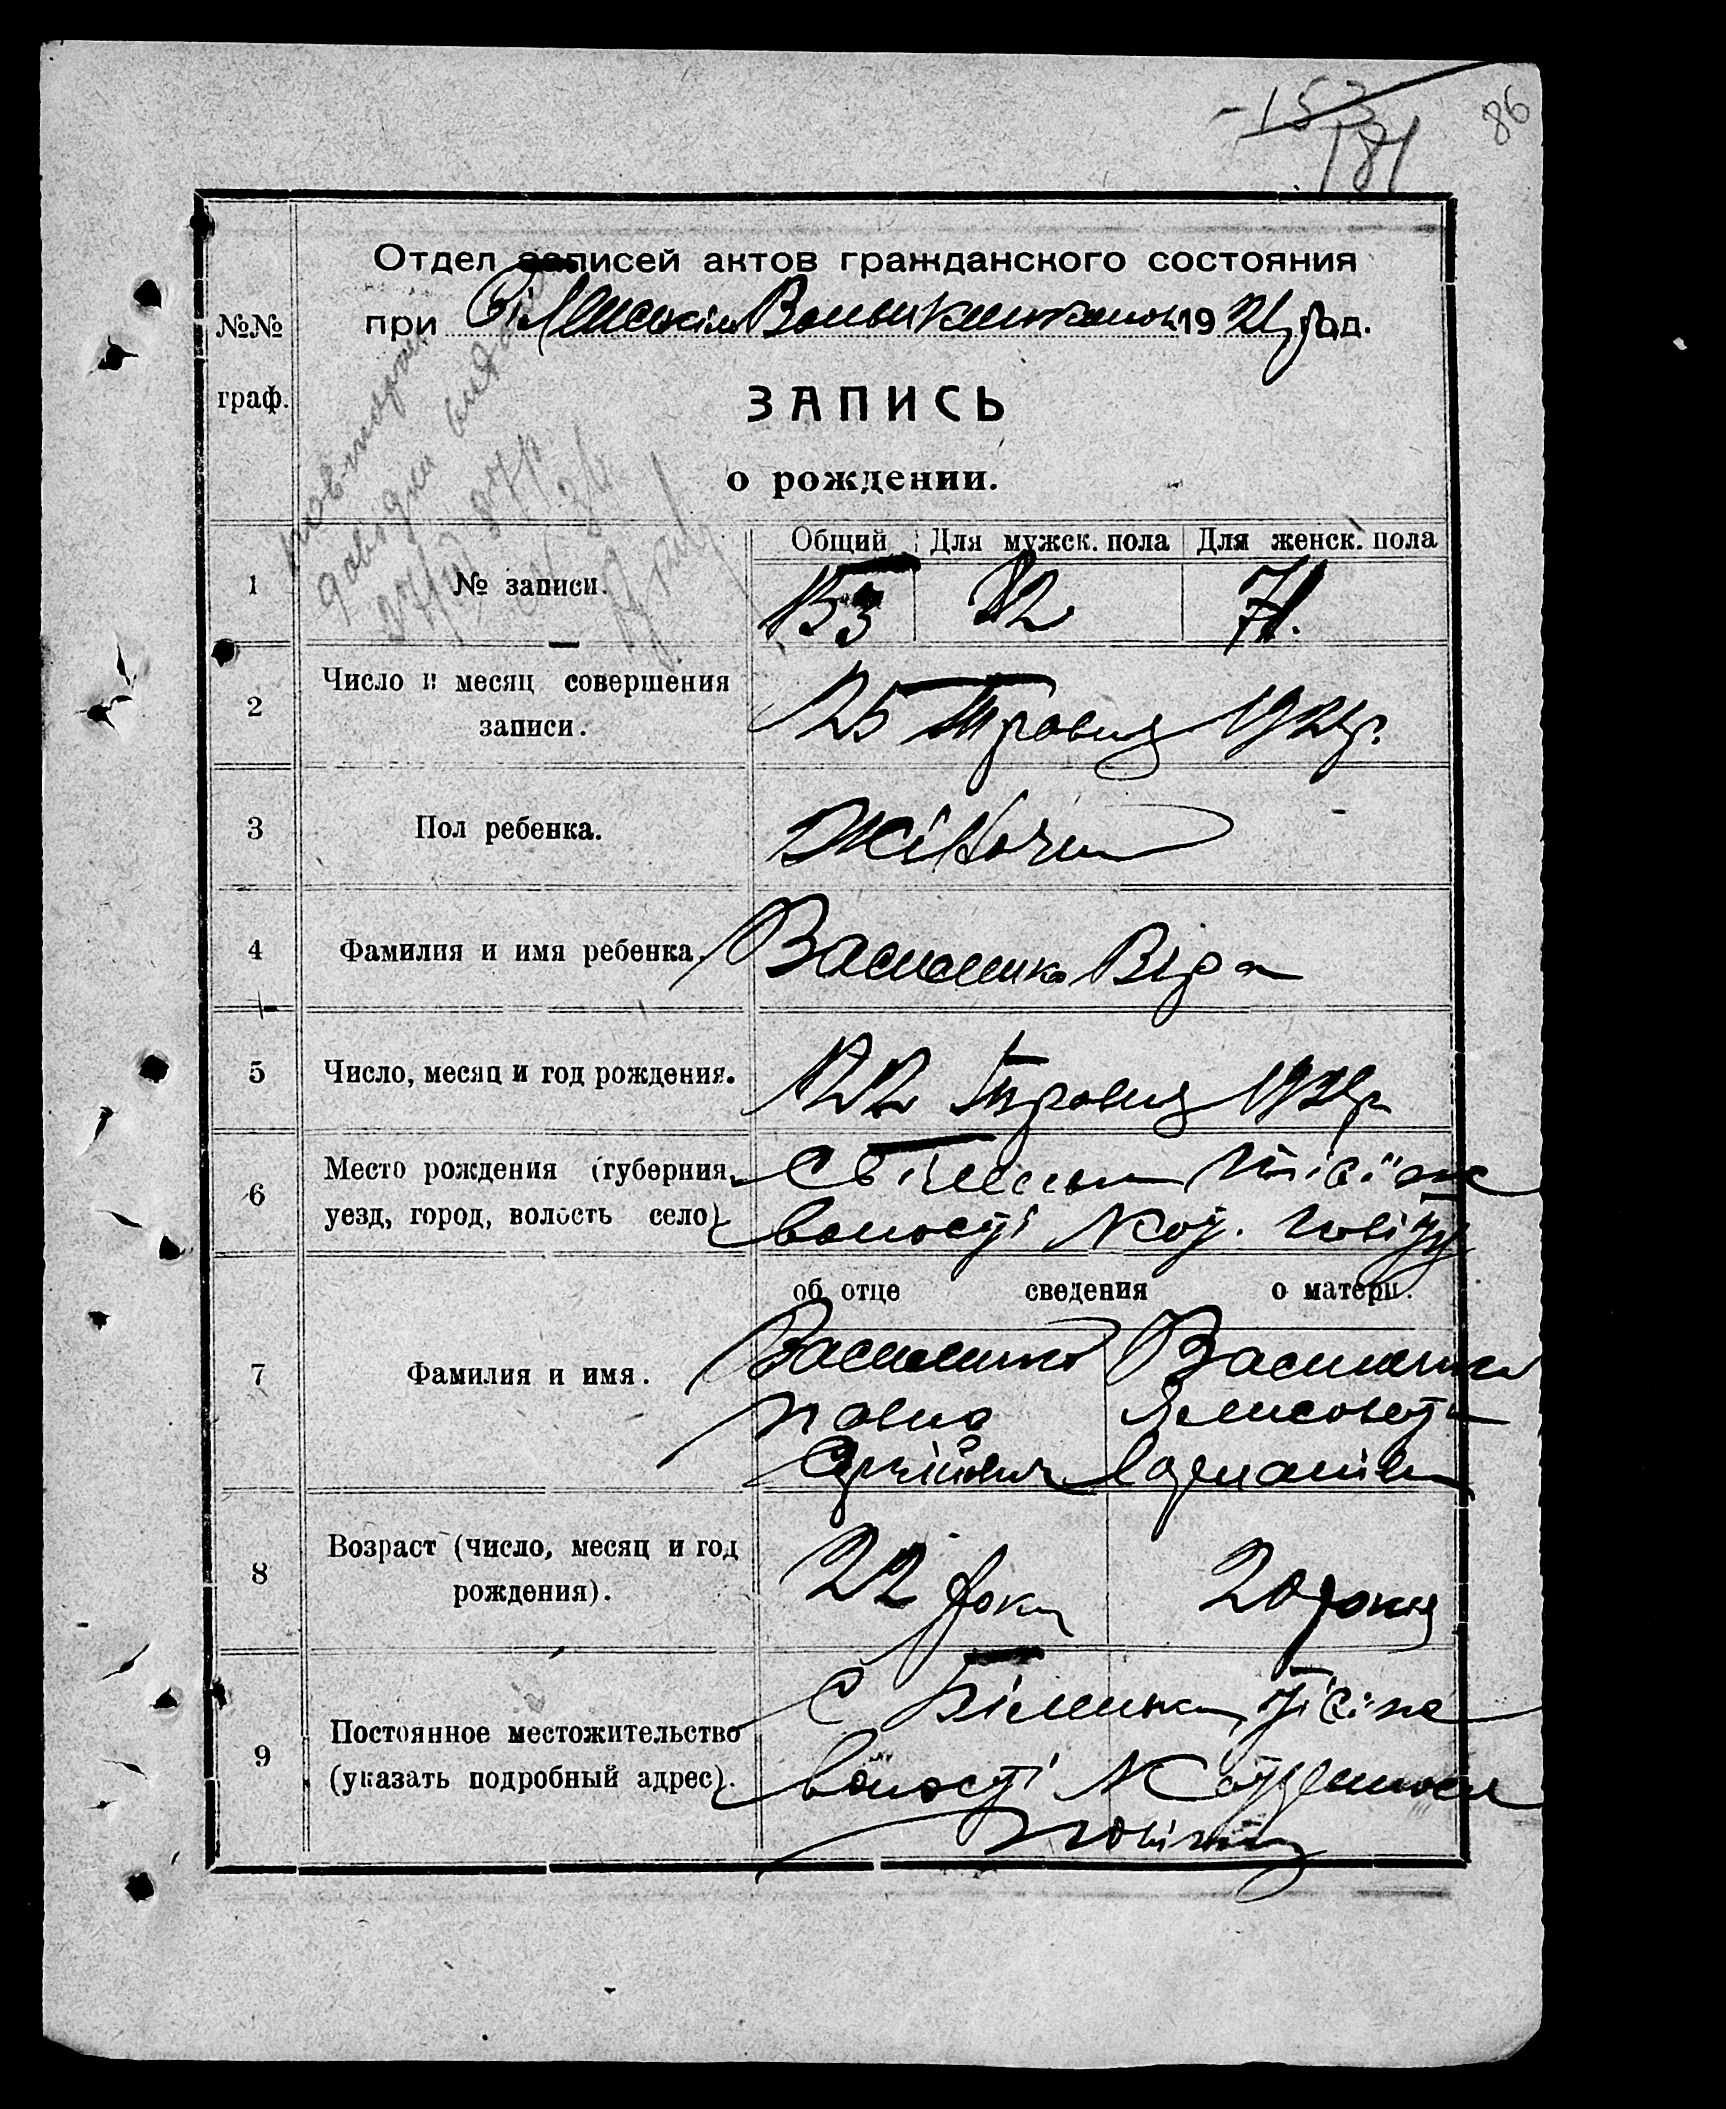 153
181
86
Отдел записей актов гражданского состояния
при Більським Волвиконкомом 1921 год.
№№
граф.
ЗАПИСЬ
о рождении.
Общий Для мужск. пола Для женск. пола
1 № записи. 153 82 71.
2 Число и месяц совершения
записи.
25 Травня 1921р.
3 Пол ребенка. Жіноча
4 Фамилия и имя ребенка. Василенко Віра
5 Число, месяц и год рождения. 22 Травня 1921р
6 Место рождения (губерния,
уезд, город, волость село)
волості Коб. повіту
об отце сведения о матери.
7 Фамилия и имя.
Василенко Василенко
Павло Єлисовета
Сергійович
8 Возраст (число, месяц и год
рождения).
22 роки 20 років
9 Постоянное местожительство
(указать подробный адрес).
С
волості
повіту
повторну
довідку видано